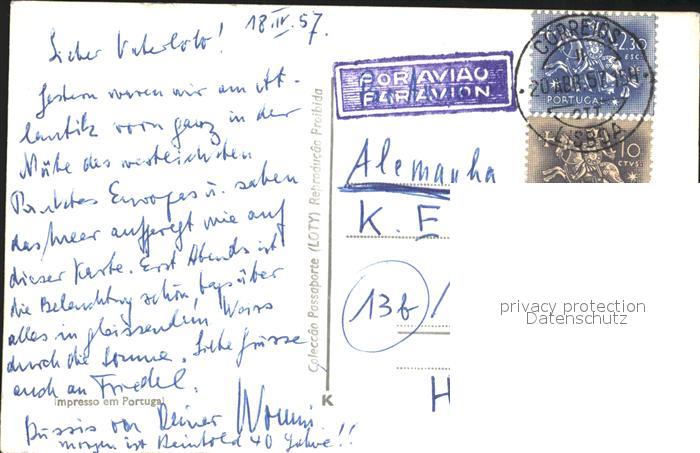 18.IV.57.
Lieber Vaterlolo!
Gestern waren wir am At-
lantik vorn ganz in der
Nähe des westlichsten
Punktes Europas u. sahen
das Meer aufgeregt wie auf
dieser Karte. Erst Abends ist
die Beleuchtung schön, tagsüber
alles in gleissendem Weiss
durch die Sonne. Liebe Grüsse
auch an Friedel.
Bussis von Deiner
morgen ist Reinhold 40 Jahre!!
Impresso em Portugal
Colecção Passaporte (LOTY) Reprodução Proibida
K
POR AVIÃO
PAR AVION
CORREIOS
20 ABR 57
LISBOA
2.30
ESC.
PORTUGAL
10
CTVS.
Alemanha
K. E
13b/
H
privacy protection
Datenschutz